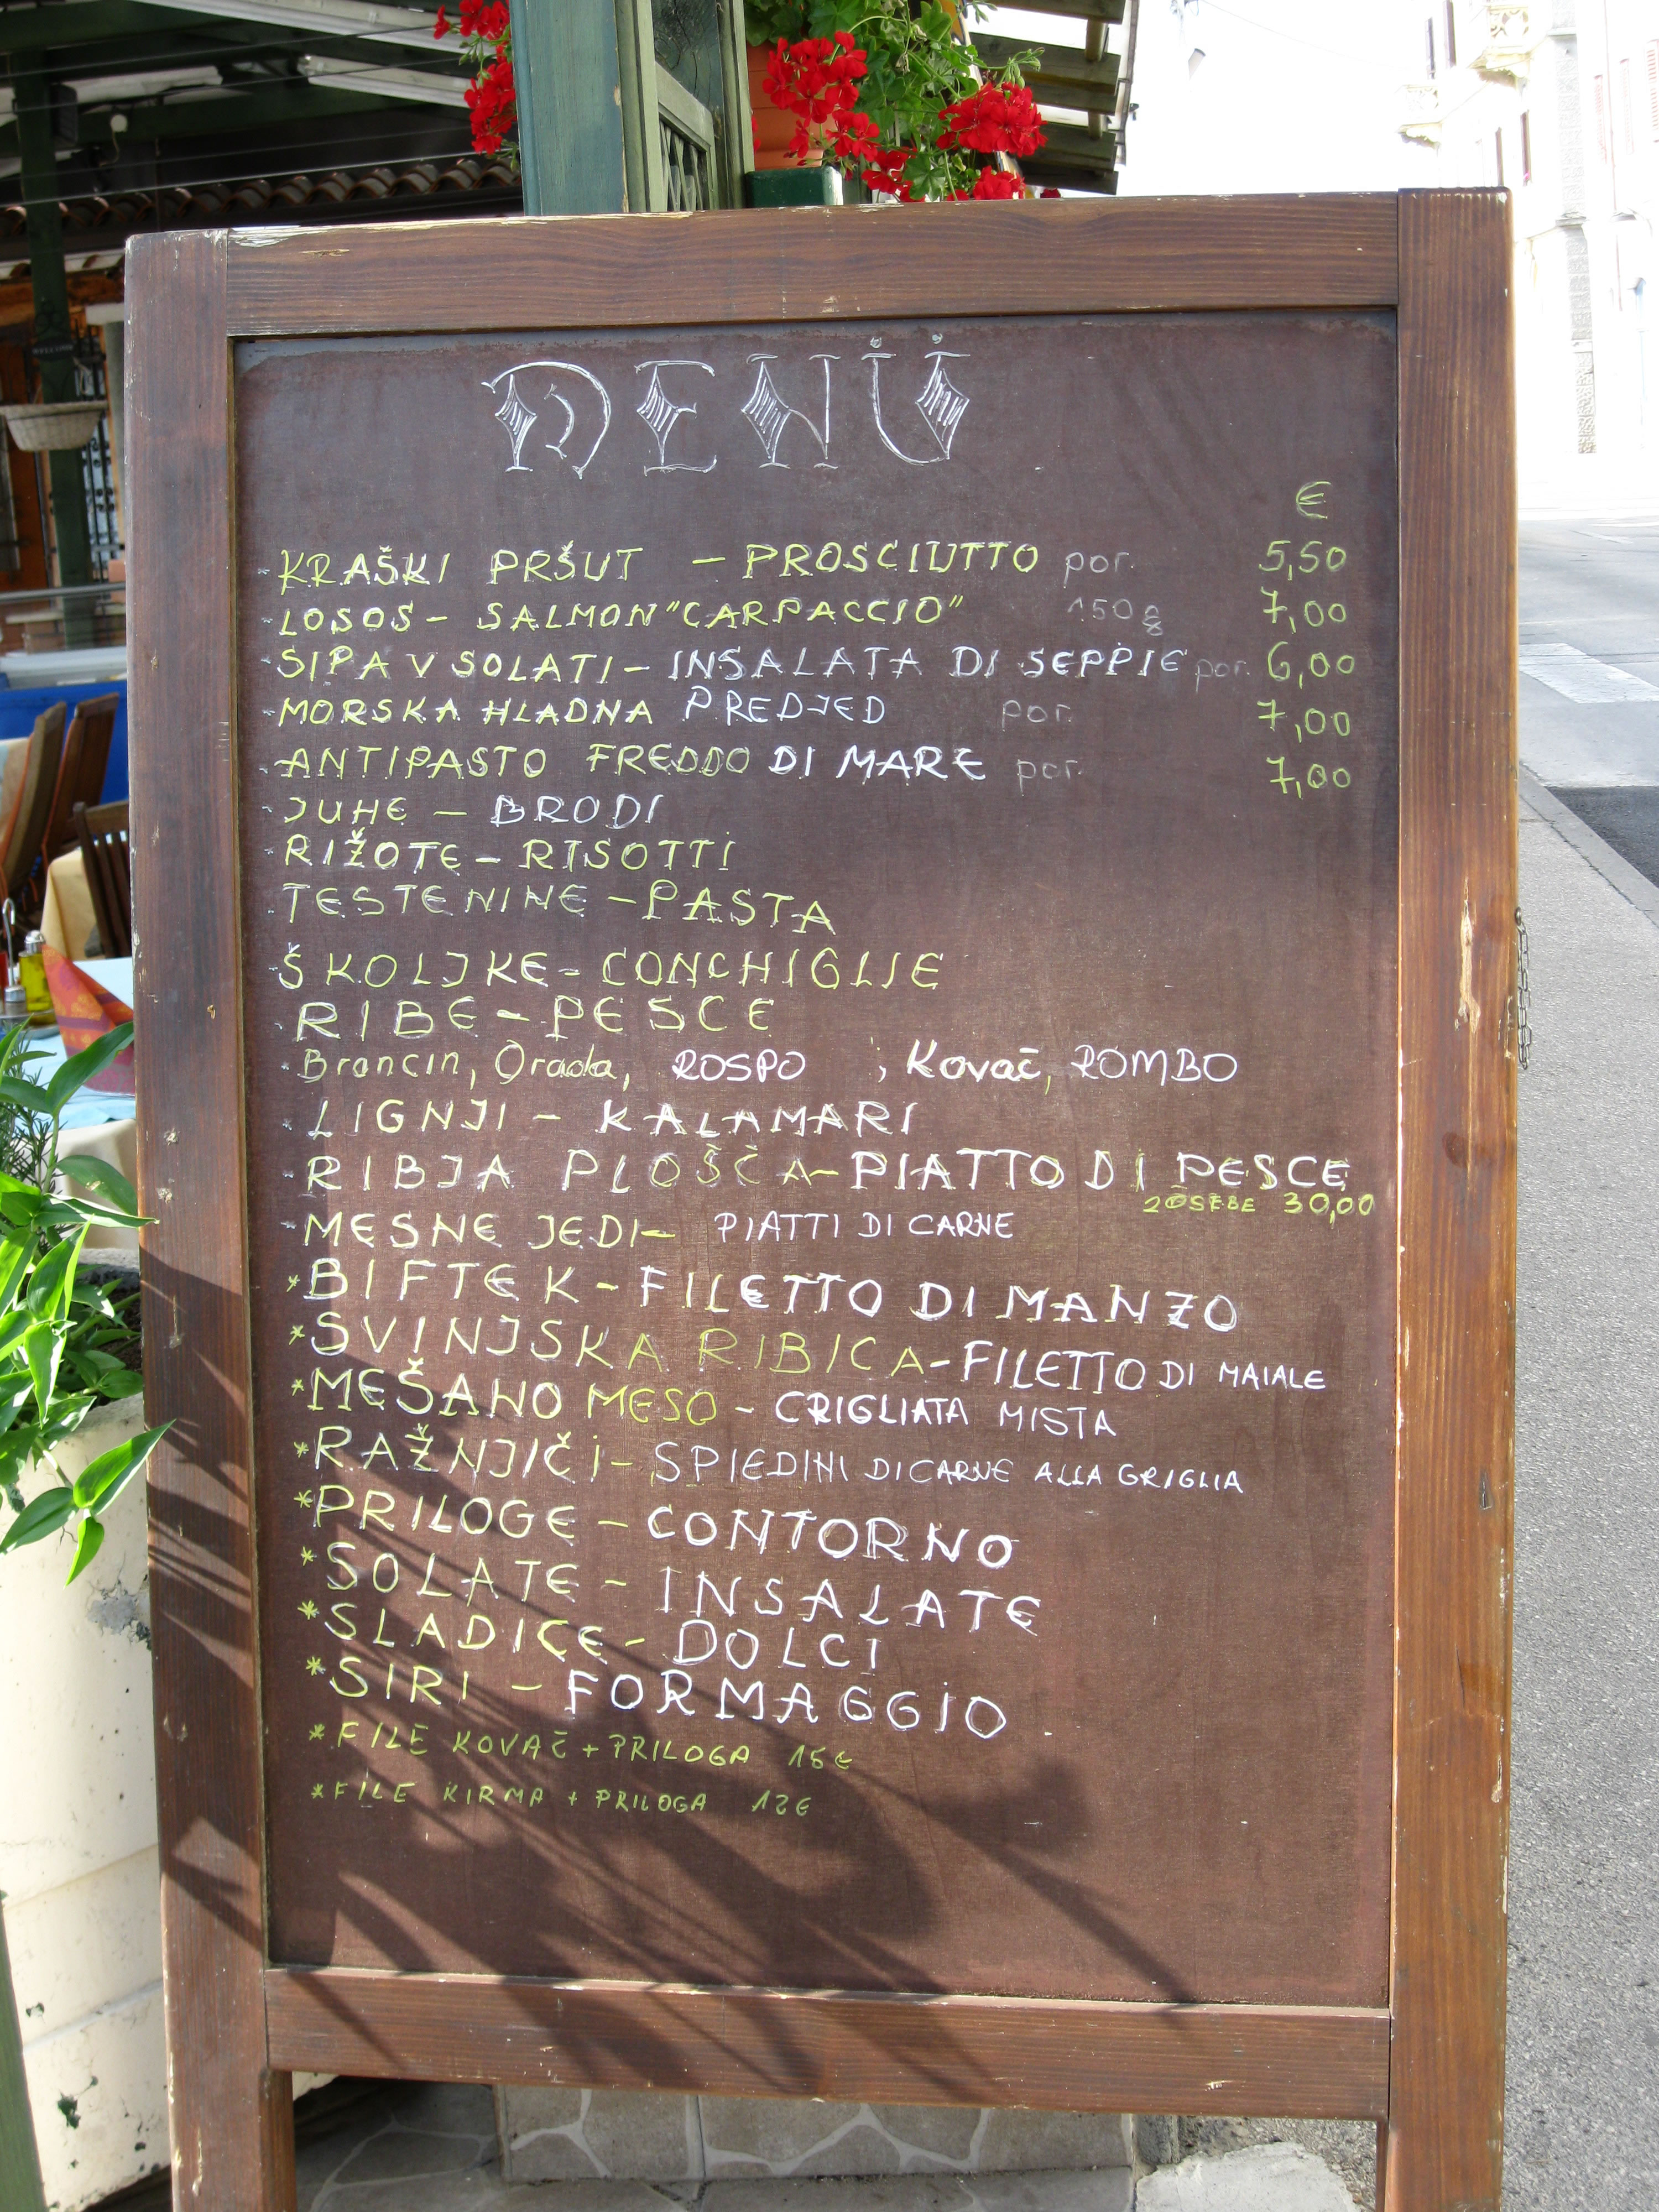 MENÜ
€
KRAŠKI PRŠUT - PROSCIUTTO por. 5,50
LOSOS - SALMON "CARPACCIO" 150g 7,00
SIPA V SOLATI - INSALATA DI SEPPIE por. 6,00
MORSKA HLADNA PREDJED por. 7,00
ANTIPASTO FREDDO DI MARE por. 7,00
JUHE - BRODI
RIŽOTE - RISOTTI
TESTENINE - PASTA
ŠKOLJKE - CONCHIGLIE
RIBE - PESCE
Brancin, Orada, ROSPO ; Kovač, ROMBO
LIGNJI - KALAMARI
RIBJA PLOŠČA - PIATTO DI PESCE
2OSEBE 30,00
MESNE JEDI - PIATTI DI CARNE
*BIFTEK - FILETTO DI MANZO
*SVINJSKA RIBICA - FILETTO DI MAIALE
*MEŠANO MESO - CRIGLIATA MISTA
*RAŽNJIČI - SPIEDINI DI CARNE ALLA GRIGLIA
*PRILOGE - CONTORNO
*SOLATE - INSALATE
*SLADICE - DOLCI
*SIRI - FORMAGGIO
*FILE KOVAČ + PRILOGA 15€
*FILE KIRMA + PRILOGA 12€